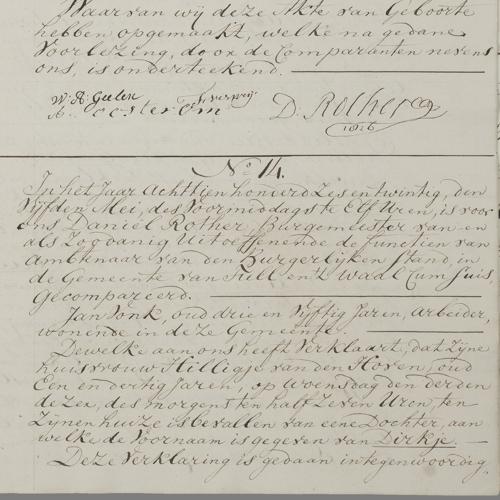 Waarvan wij deze Akte van Geboorte
hebben opgemaakt, welke na gedane
Voorlezing, door de Comparanten nevens
ons, is onderteekend.
W: A: Geelen
D. Rother
1826
No. 14.
In het Jaar Achttien honderd Zes en twintig, den
Vijfden Mei, des Voormiddags te Elf Uren, is voor
ons Daniël Rother, Burgemeester van en
als Zoodanig Uitoeffenende de functien van
Ambtenaar van den Burgerlijken Stand, in
de Gemeente van Tull en 't Waal Cum Suis,
Gecompareerd.
Jan Vonk, oud drie en Vijftig Jaren, Arbeider,
wonende in deze Gemeente.
Dewelke aan ons heeft Verklaart, dat Zijne
huisvrouw Hilligje van den Hoven, oud
Een en dertig Jaren, op Woensdag den derden
dezer, des morgens ten half Zeven Uren, ten
Zijnen huize is bevallen van eene Dochter, aan
welke de Voornaam is gegeven van Dirkje.
Deze Verklaring is gedaan in tegenwoordig